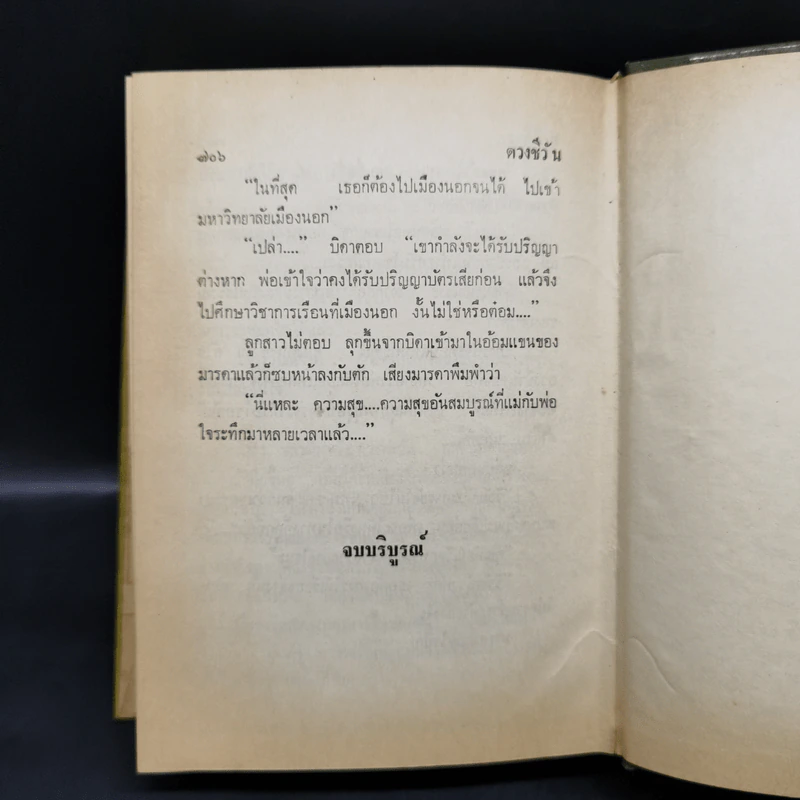 ๗๐๖ ดวงชีวัน
“ในที่สุด เธอก็ต้องไปเมืองนอกจนได้ ไปเข้า
มหาวิทยาลัยเมืองนอก”
“เปล่า....” บิดาตอบ “เขากำลังจะได้รับปริญญา
ต่างหาก พ่อเข้าใจว่าคงได้รับปริญญาบัตรเสียก่อน แล้วจึง
ไปศึกษาวิชาการเรือนที่เมืองนอก งั้นไม่ใช่หรือต๋อม....”
ลูกสาวไม่ตอบ ลุกขึ้นจากบิดาเข้ามาในอ้อมแขนของ
มารดาแล้วก็ซบหน้าลงกับตัก เสียงมารดาพึมพำว่า
“นี่แหละ ความสุข....ความสุขอันสมบูรณ์ที่แม่กับพ่อ
ใจระทึกมาหลายเวลาแล้ว....”
จบบริบูรณ์